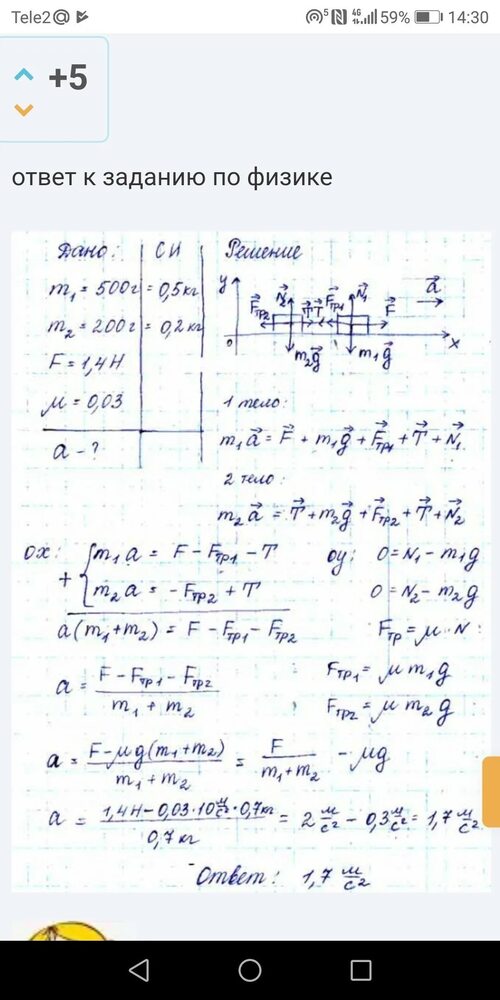 Tele2@ 5 4G 59% 14:30
+5
ответ к заданию по физике
Дано: СИ Решение
m₁ = 500г = 0,5кг
m₂ = 200г = 0,2кг
F = 1,4Н
μ = 0,03
a - ?
y F⃗тр2 N⃗₂ T⃗ T⃗ F⃗тр1 N⃗₁ F⃗ a⃗
0 m₂g⃗ m₁g⃗ x
1 тело:
m₁a⃗ = F⃗ + m₁g⃗ + F⃗тр1 + T⃗ + N⃗₁
2 тело:
m₂a⃗ = T⃗ + m₂g⃗ + F⃗тр2 + T⃗ + N⃗₂
ох: + { m₁a = F - Fтр1 - T оу: 0 = N₁ - m₁g
m₂a = -Fтр2 + T 0 = N₂ - m₂g
a(m₁+m₂) = F - Fтр1 - Fтр2 Fтр = μ·N:
a = (F - Fтр1 - Fтр2)/(m₁ + m₂) Fтр1 = μm₁g
Fтр2 = μm₂g
a = (F - μg(m₁+m₂))/(m₁+m₂) = F/(m₁+m₂) - μg
a = (1,4Н - 0,03·10 м/с²·0,7кг)/(0,7кг) = 2 м/с² - 0,3 м/с² = 1,7 м/с²
Ответ: 1,7 м/с²